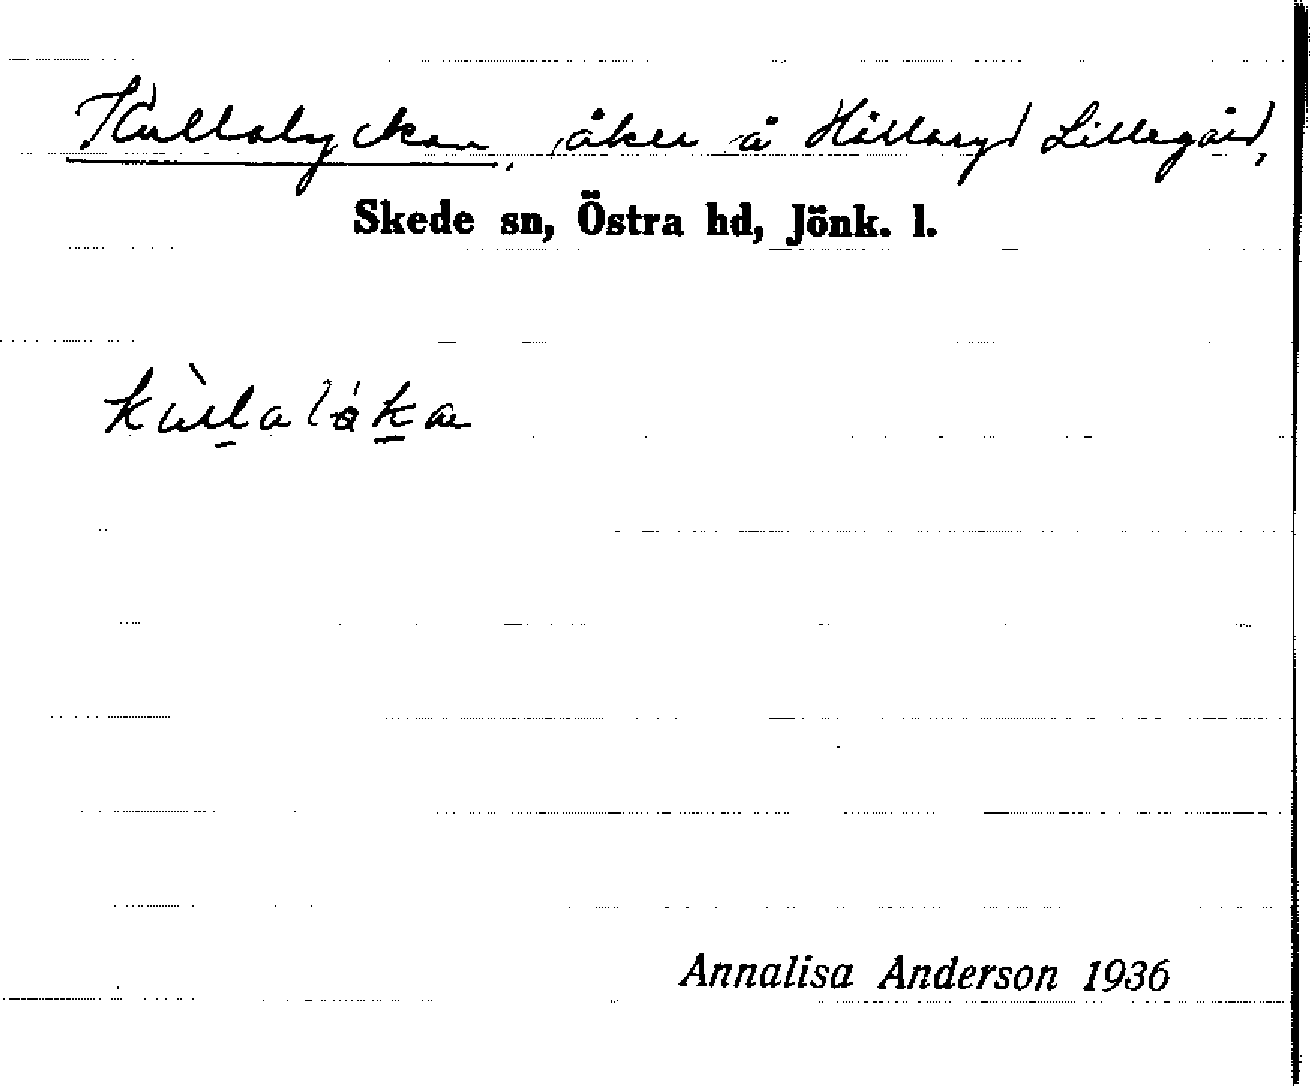 Kullalyckan, åker å Hållaryd Lillegård,
Skede sn, Östra hd, Jönk. l.
Annalisa Anderson 1936